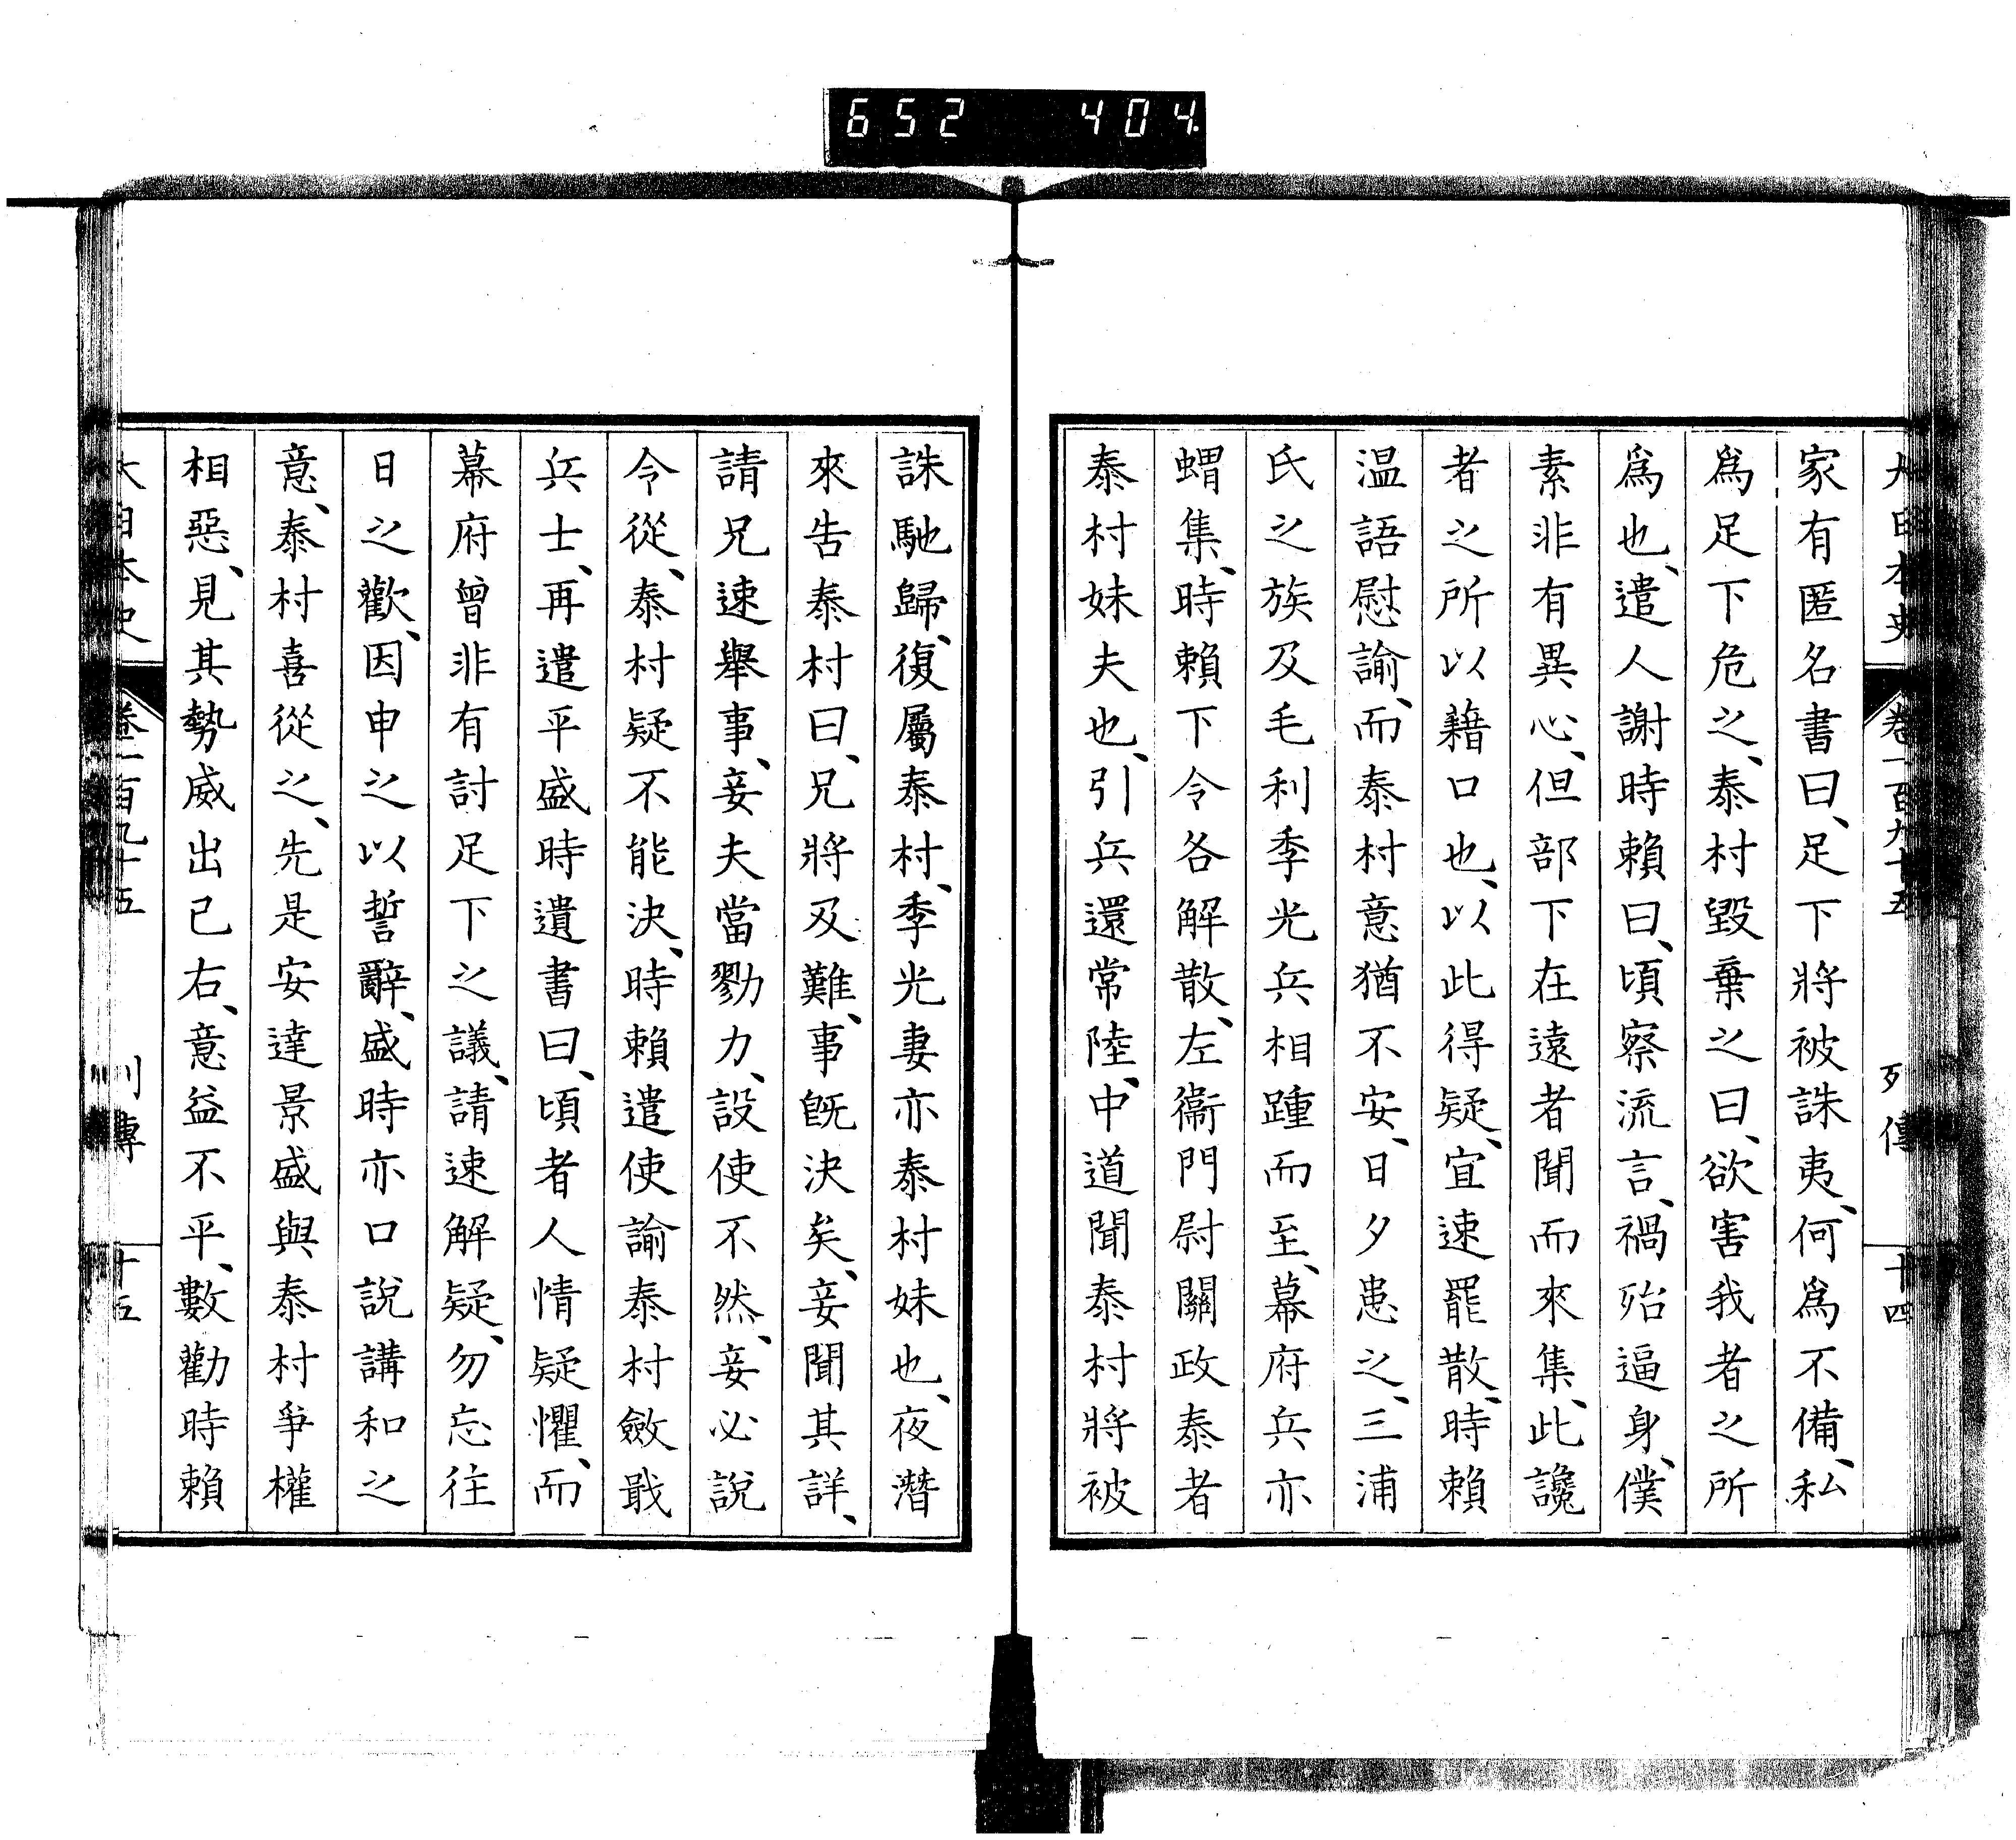 652 404.
大日本史 卷一百九十五 列傳 十四
家有匿名書曰、足下將被誅夷、何爲不備、私
爲足下危之、泰村毀棄之曰、欲害我者之所
爲也、遣人謝時賴曰、頃察流言、禍殆逼身、僕
素非有異心、但部下在遠者聞而來集、此讒
者之所以藉口也、以此得疑、宜速罷散、時賴
温語慰諭、而泰村意猶不安、日夕患之、三浦
氏之族及毛利季光兵相踵而至、幕府兵亦
蝟集、時賴下令各解散、左衞門尉關政泰者
泰村妹夫也、引兵還常陸、中道聞泰村將被
誅馳歸、復屬泰村、季光妻亦泰村妹也、夜潛
來告泰村曰、兄將及難、事旣決矣、妾聞其詳、
請兄速舉事、妾夫當勠力、設使不然、妾必說
令從、泰村疑不能決、時賴遣使諭泰村斂戢
兵士、再遣平盛時遺書曰、頃者人情疑懼、而
幕府曾非有討足下之議、請速解疑、勿忘往
日之歡、因申之以誓辭、盛時亦口說講和之
意、泰村喜從之、先是安達景盛與泰村爭權
相惡、見其勢威出己右、意益不平、數勸時賴
大日本史 卷一百九十五 列傳 十五